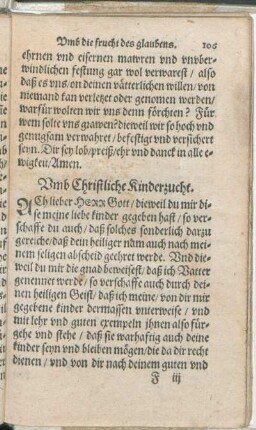 Vmb die frucht des glaubens. 106
ehrnen vnd eisernen mawren vnd vnvber-
windlichen festung gar wol verwarest / also
daß es vns, on deinen vätterlichen willen / von
niemand kan verletzt oder genomen werden/
war für wolten wir vns denn förchten? Für
wem solte vns grawen? dieweil wir so hoch vnd
genugsam verwahret / befestigt vnd versichert
seyn. Dir sey lob / preiß / ehr vnd danck in alle e-
wigkeit / Amen.
Vmb Christliche Kinderzucht.
ACh lieber HERR Gott / dieweil du mir di-
se meine liebe kinder gegeben hast / so ver-
schaffe du auch / daß solches sonderlich darzu
gereiche / daß dein heiliger nam auch nach mei-
nem seligen abscheid geehret werde. Vnd die-
weil du mir die gnad beweisest / daß ich Vatter
genennet werde / so verschaffe auch durch dei-
nen heiligen Geist / daß ich meine / von dir mir
gegebene kinder dermassen vnterweise / vnd
mit lehr vnd guten exempeln jhnen also für-
gehe vnd stehe / daß sie warhaftig auch deine
kinder seyn vnd bleiben mögen / die da dir recht
dienen / vnd von dir nach deinem guten vnd
F iij